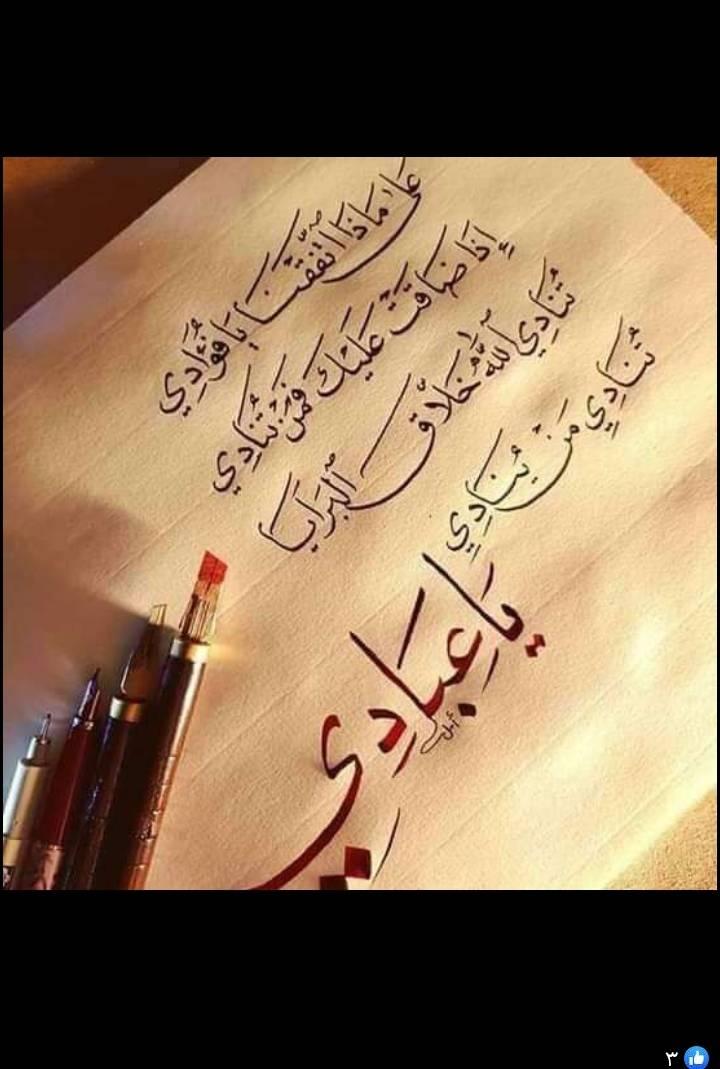 عَلَى مَاذَا اتَّفَقْنَا يَا فُؤَادِي
إِذَا ضَاقَتْ عَلَيْكَ فَمَنْ تُنَادِي
تُنَادِي ٱللّٰهَ خَلَّاقَ ٱلْبَرَايَا
تُنَادِي مَنْ يُنَادِي
يَا عِبَادِي
٣